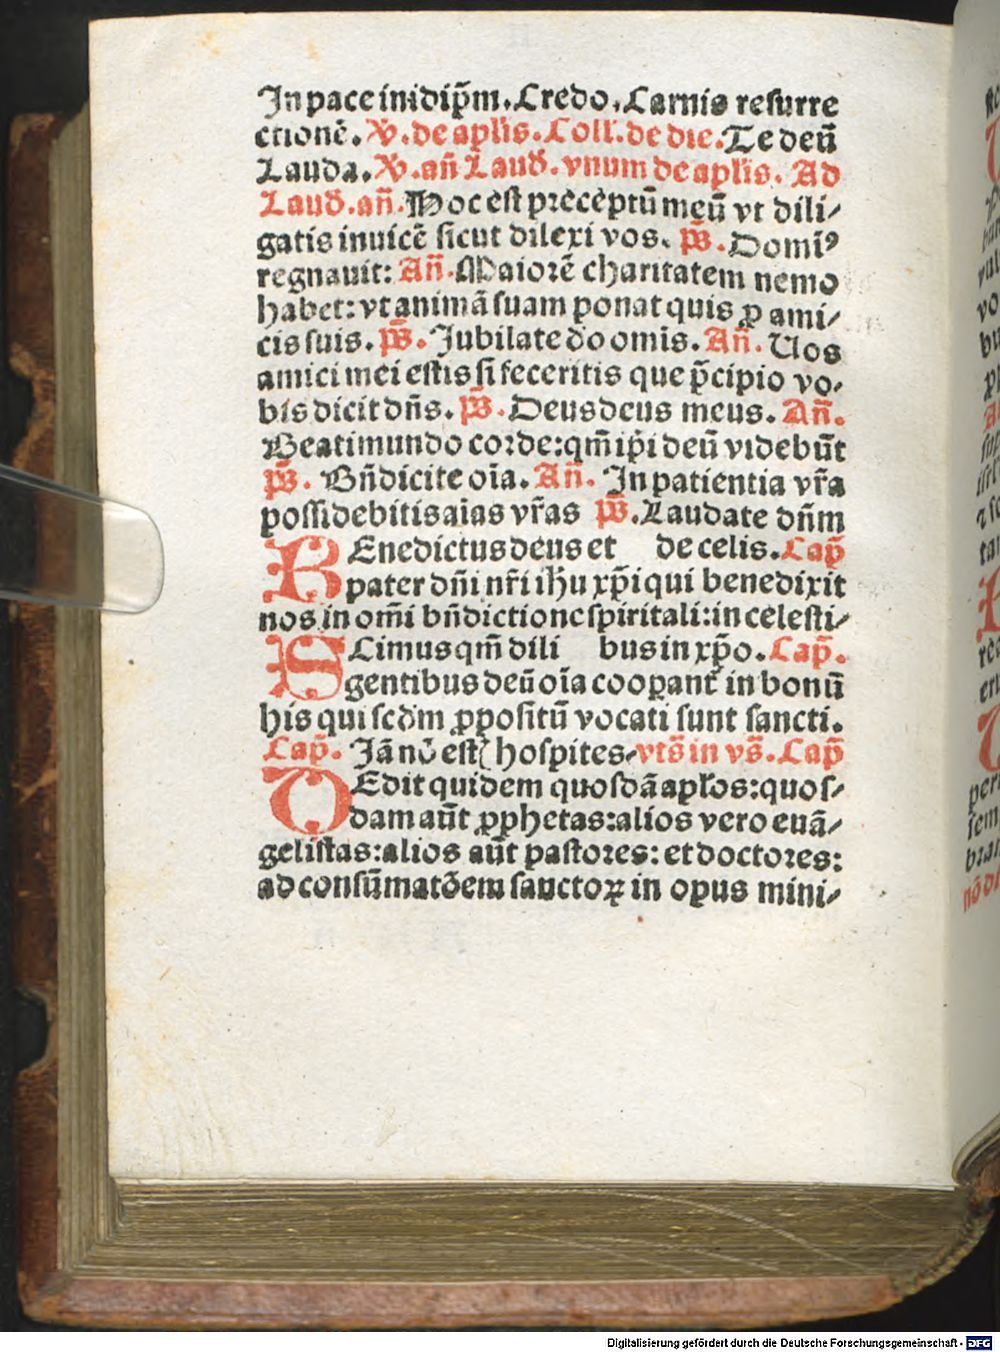 In pace in idip̄m. Credo. Carnis resurre
ctionē. V̄. de apl̄is. Coll. de die. Te deū
Lauda. V̄. añ Laud̄. vnum de apl̄is. Ad
Laud̄. añ. Hoc est preceptū meū vt dili⸗
gatis inuicē sicut dilexi vos. p̄s. Domi⁹
regnauit: Añ. Maiorē charitatem nemo
habet: vt animā suam ponat quis ꝓ ami⸗
cis suis. p̄s. Jubilate do omis. Añ. Uos
amici mei estis si feceritis que p̄cipio vo⸗
bis dicit dn̄s. p̄s. Deus deus meus. Añ.
Beati mundo corde: qm̄ ip̄i deū videbūt
p̄s. Bn̄dicite oīa. Añ. In patientia vr̄a
possidebitis aīas vr̄as p̄s. Laudate dn̄m
BEnedictus deus et de celis. Cap̄
pater dn̄i nr̄i ih̄u xp̄i qui benedixit
nos in om̄i bn̄dictione spiritali: in celesti⸗
SCimus qm̄ dili bus in xp̄o. Cap̄.
gentibus deū oīa cooꝑant̄ in bonū
his qui scd̄m ꝓpositū vocati sunt sancti.
Cap̄. Jā nō est hospites vts̄ in vs̄. Cap̄
DEdit quidem quosdā apl̄os: quos⸗
dam aūt ꝓphetas: alios vero euā⸗
gelistas: alios aūt pastores: et doctores:
ad consūmatōem sanctoꝝ in opus mini⸗
Digitalisierung gefördert durch die Deutsche Forschungsgemeinschaft - DFG